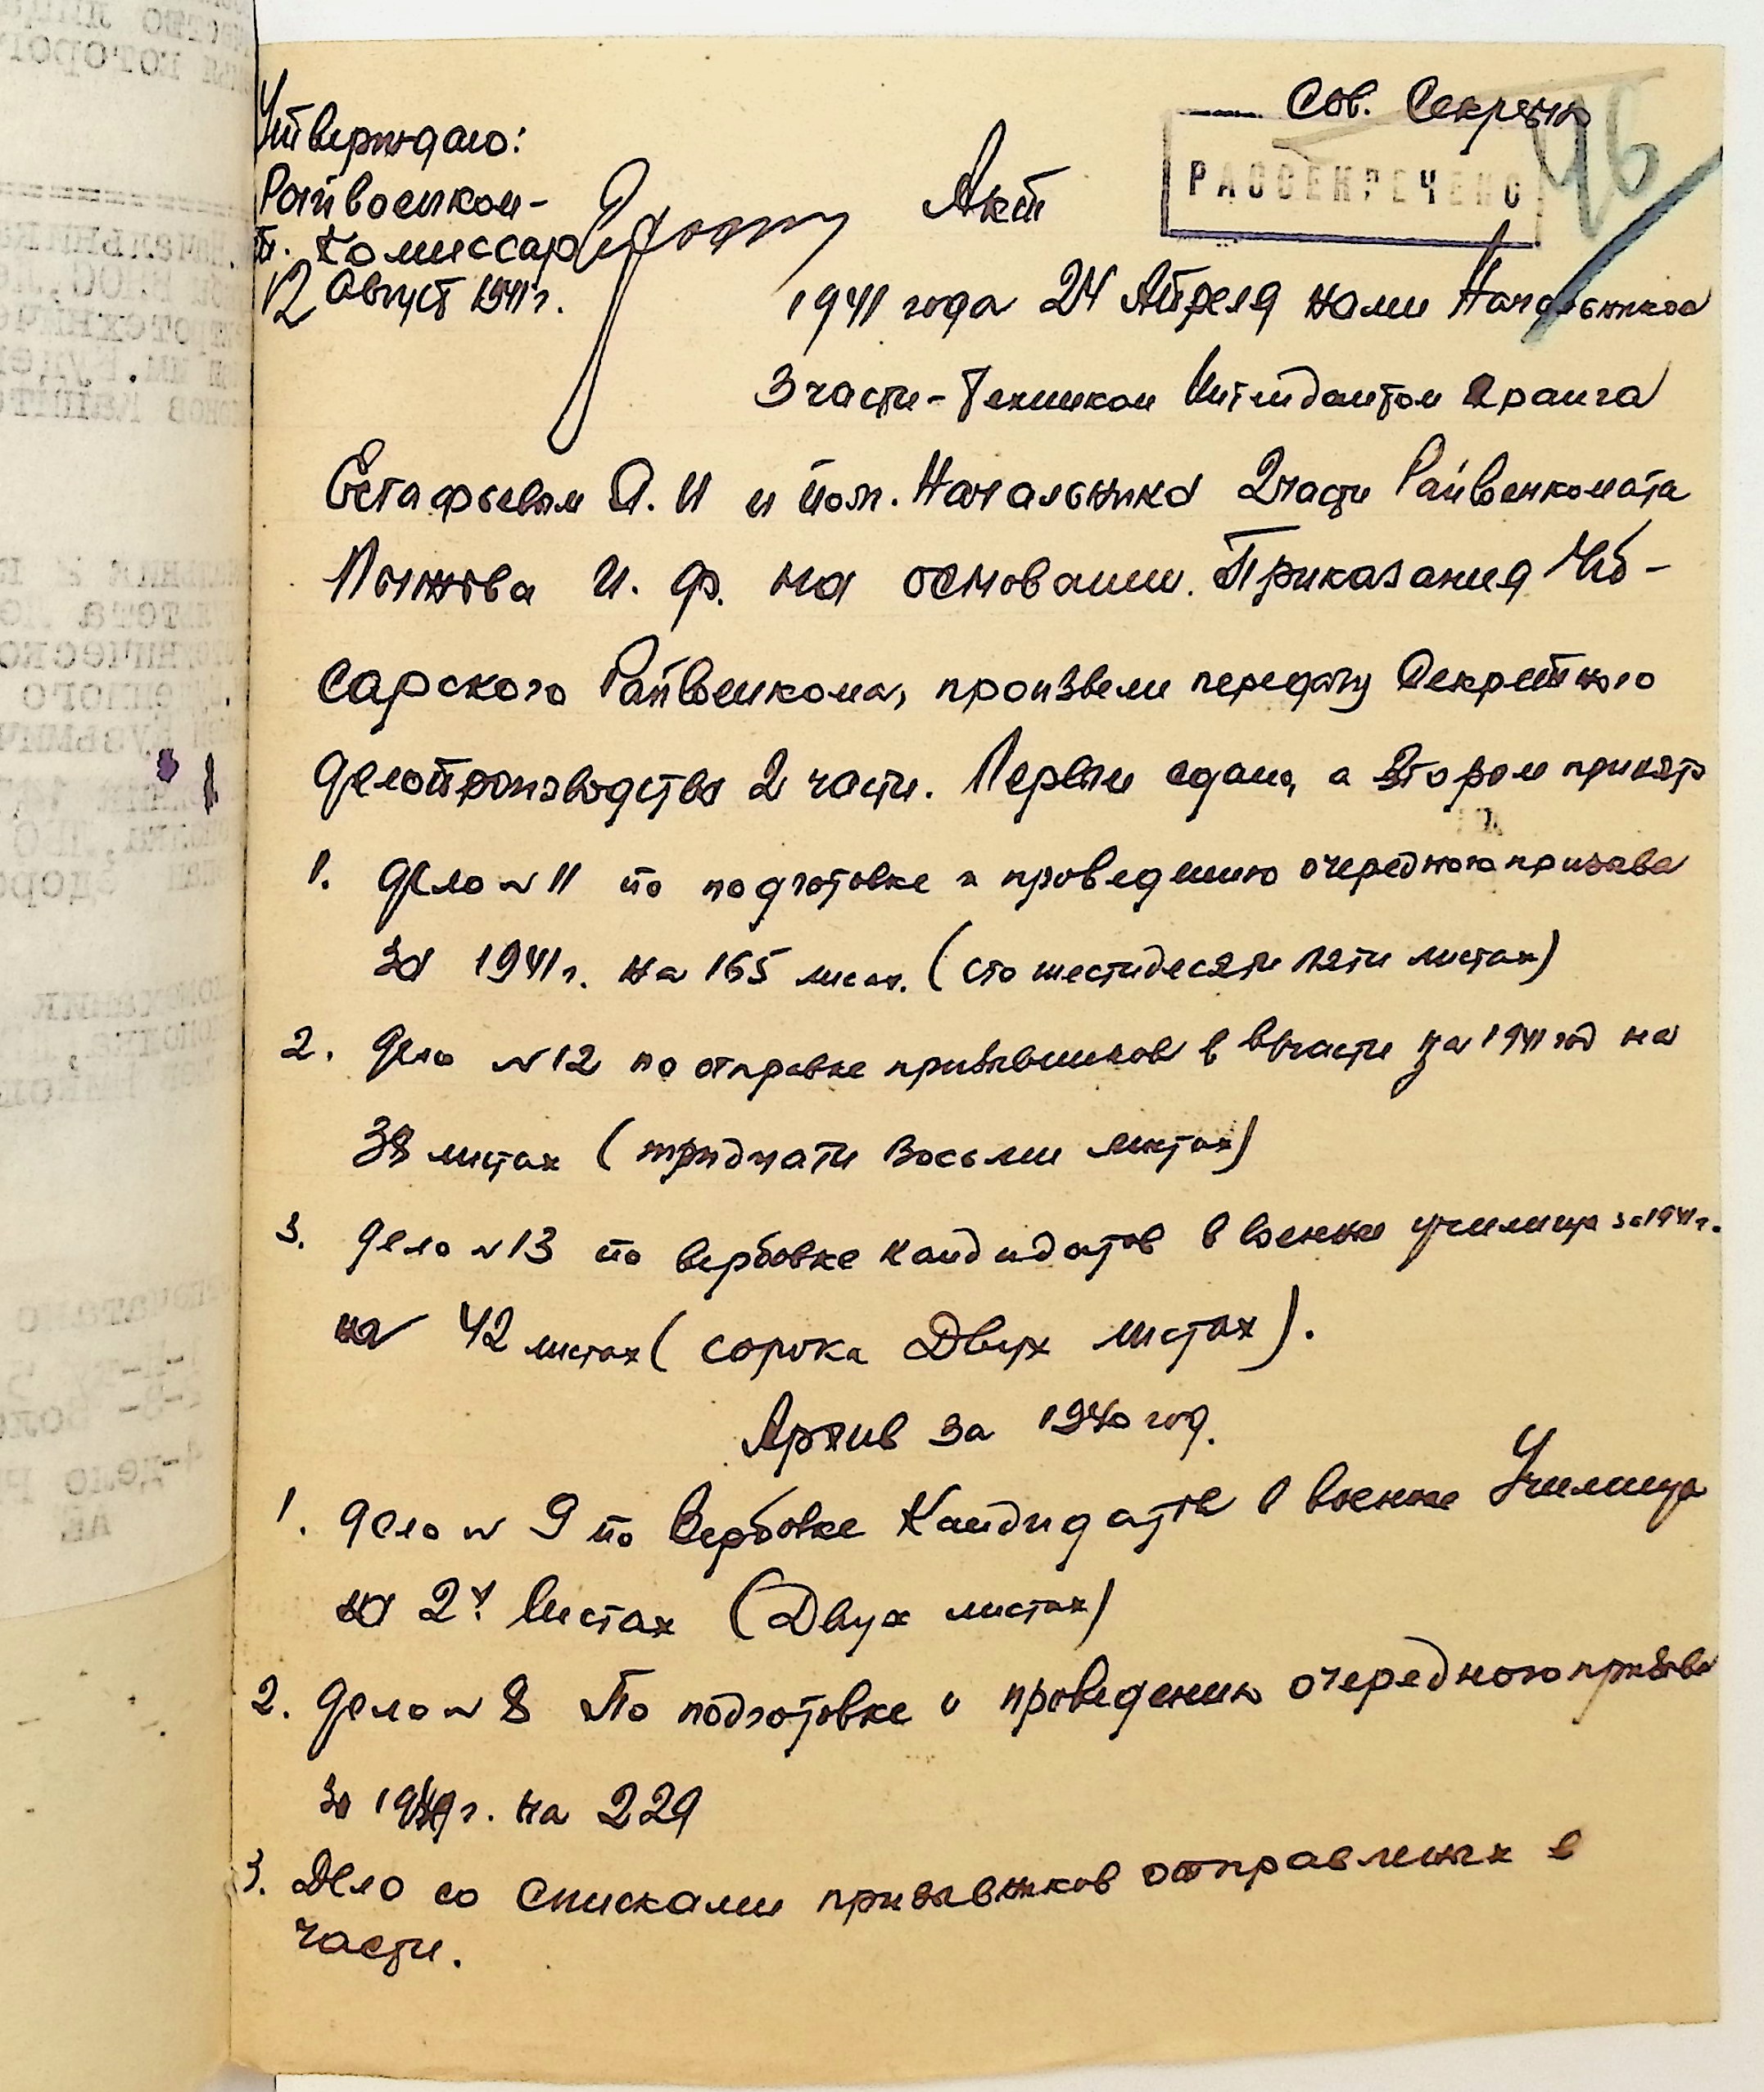 Сов. Секретно
РАССЕКРЕЧЕНО
Утверждаю:
Райвоенком-
Комиссар
12 Август 1941 г.
Акт
1941 года 24 Апреля нами Начальником
3 части - Техником Интендантом 2 ранга
Естафьевым А. И и пом. Начальника 2 части Райвоенкомата
И. Ф. на основании Приказания Чебо-
сарского Райвоенкома, произвели передачу Секретного
делопроизводства 2 части. Первый сдал, а Второй принял
1. Дело № 11 по подготовке и проведению очередного призыва
за 1941 г. на 165 листах. (сто шестидесяти пяти листах)
2. Дело № 12 по отправке призывников в в/части за 1941 год на
38 листах (тридцати восьми листах)
3. Дело № 13 по вербовке кандидатов в военные училища за 1941 г.
на 42 листах (сорока Двух листах).
Архив за 1940 год.
1. Дело № 9 по Вербовке Кандидатов в военные Училища
на 2х листах (Двух листах)
2. Дело № 8 По подготовке и проведению очередного призыва
за г. на 229
3. Дело со Списками призывников отправленых в
части.